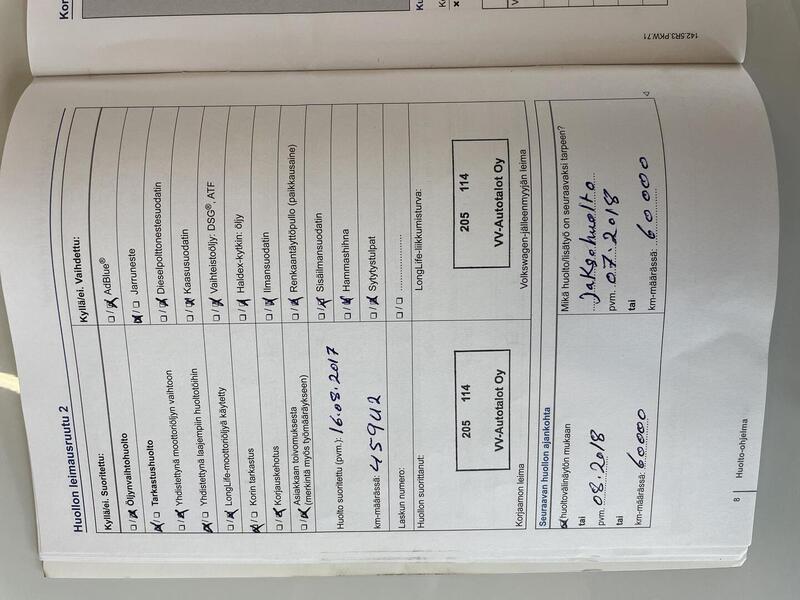 Kor
Ku
142.5R3.PKW.71
Huollon leimausruutu 2
Kyllä/ei. Suoritettu:
☐/☒ Öljynvaihtohuolto
☒/☐ Tarkastushuolto
☐/☒ Yhdistettynä moottoriöljyn vaihtoon
☒/☐ Yhdistettynä laajempiin huoltotöihin
☐/☒ LongLife-moottoriöljyä käytetty
☒/☐ Korin tarkastus
☐/☒ Korjauskehotus
☐/☒ Asiakkaan toivomuksesta
(merkintä myös työmääräykseen)
Huolto suoritettu (pvm.): 16.08.2017
km-määrässä: 45942
Laskun numero:
Huollon suorittanut:
205 114
VV-Autotalot Oy
Korjaamon leima
Kyllä/ei. Vaihdettu:
☐/☒ AdBlue®
☒/☐ Jarruneste
☐/☒ Dieselpolttonestesuodatin
☐/☒ Kaasusuodatin
☐/☒ Vaihteistoöljy: DSG®, ATF
☐/☒ Haldex-kytkin: öljy
☐/☒ Ilmansuodatin
☐/☒ Renkaantäyttöpullo (paikkausaine)
☐/☒ Sisäilmansuodatin
☐/☒ Hammashihna
☐/☒ Sytytystulpat
☐/☐ ....................
LongLife-liikkumisturva:
205 114
VV-Autotalot Oy
Volkswagen-jälleenmyyjän leima
Seuraavan huollon ajankohta
☒ huoltovälinäytön mukaan
tai
pvm. 08.2018
tai
km-määrässä: 60000
Mikä huolto/lisätyö on seuraavaksi tarpeen?
Jaksohuolto
pvm. 07.2018
tai
km-määrässä: 60000
8 | Huolto-ohjelma